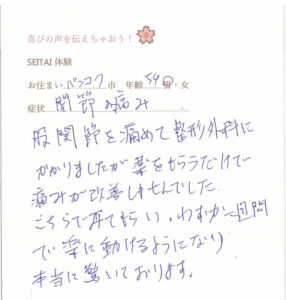 喜びの声を伝えちゃおう！
SEITAI 体験
お住まい バンコク 市 年齢 54 男・女
症状 関節の痛み .
股関節を痛めて整形外科に
かかりましたが薬をもらうだけで
痛みが改善しませんでした.
こちらで見てもらい、わずか一週間
で楽に動けるようになり
本当に驚いております。